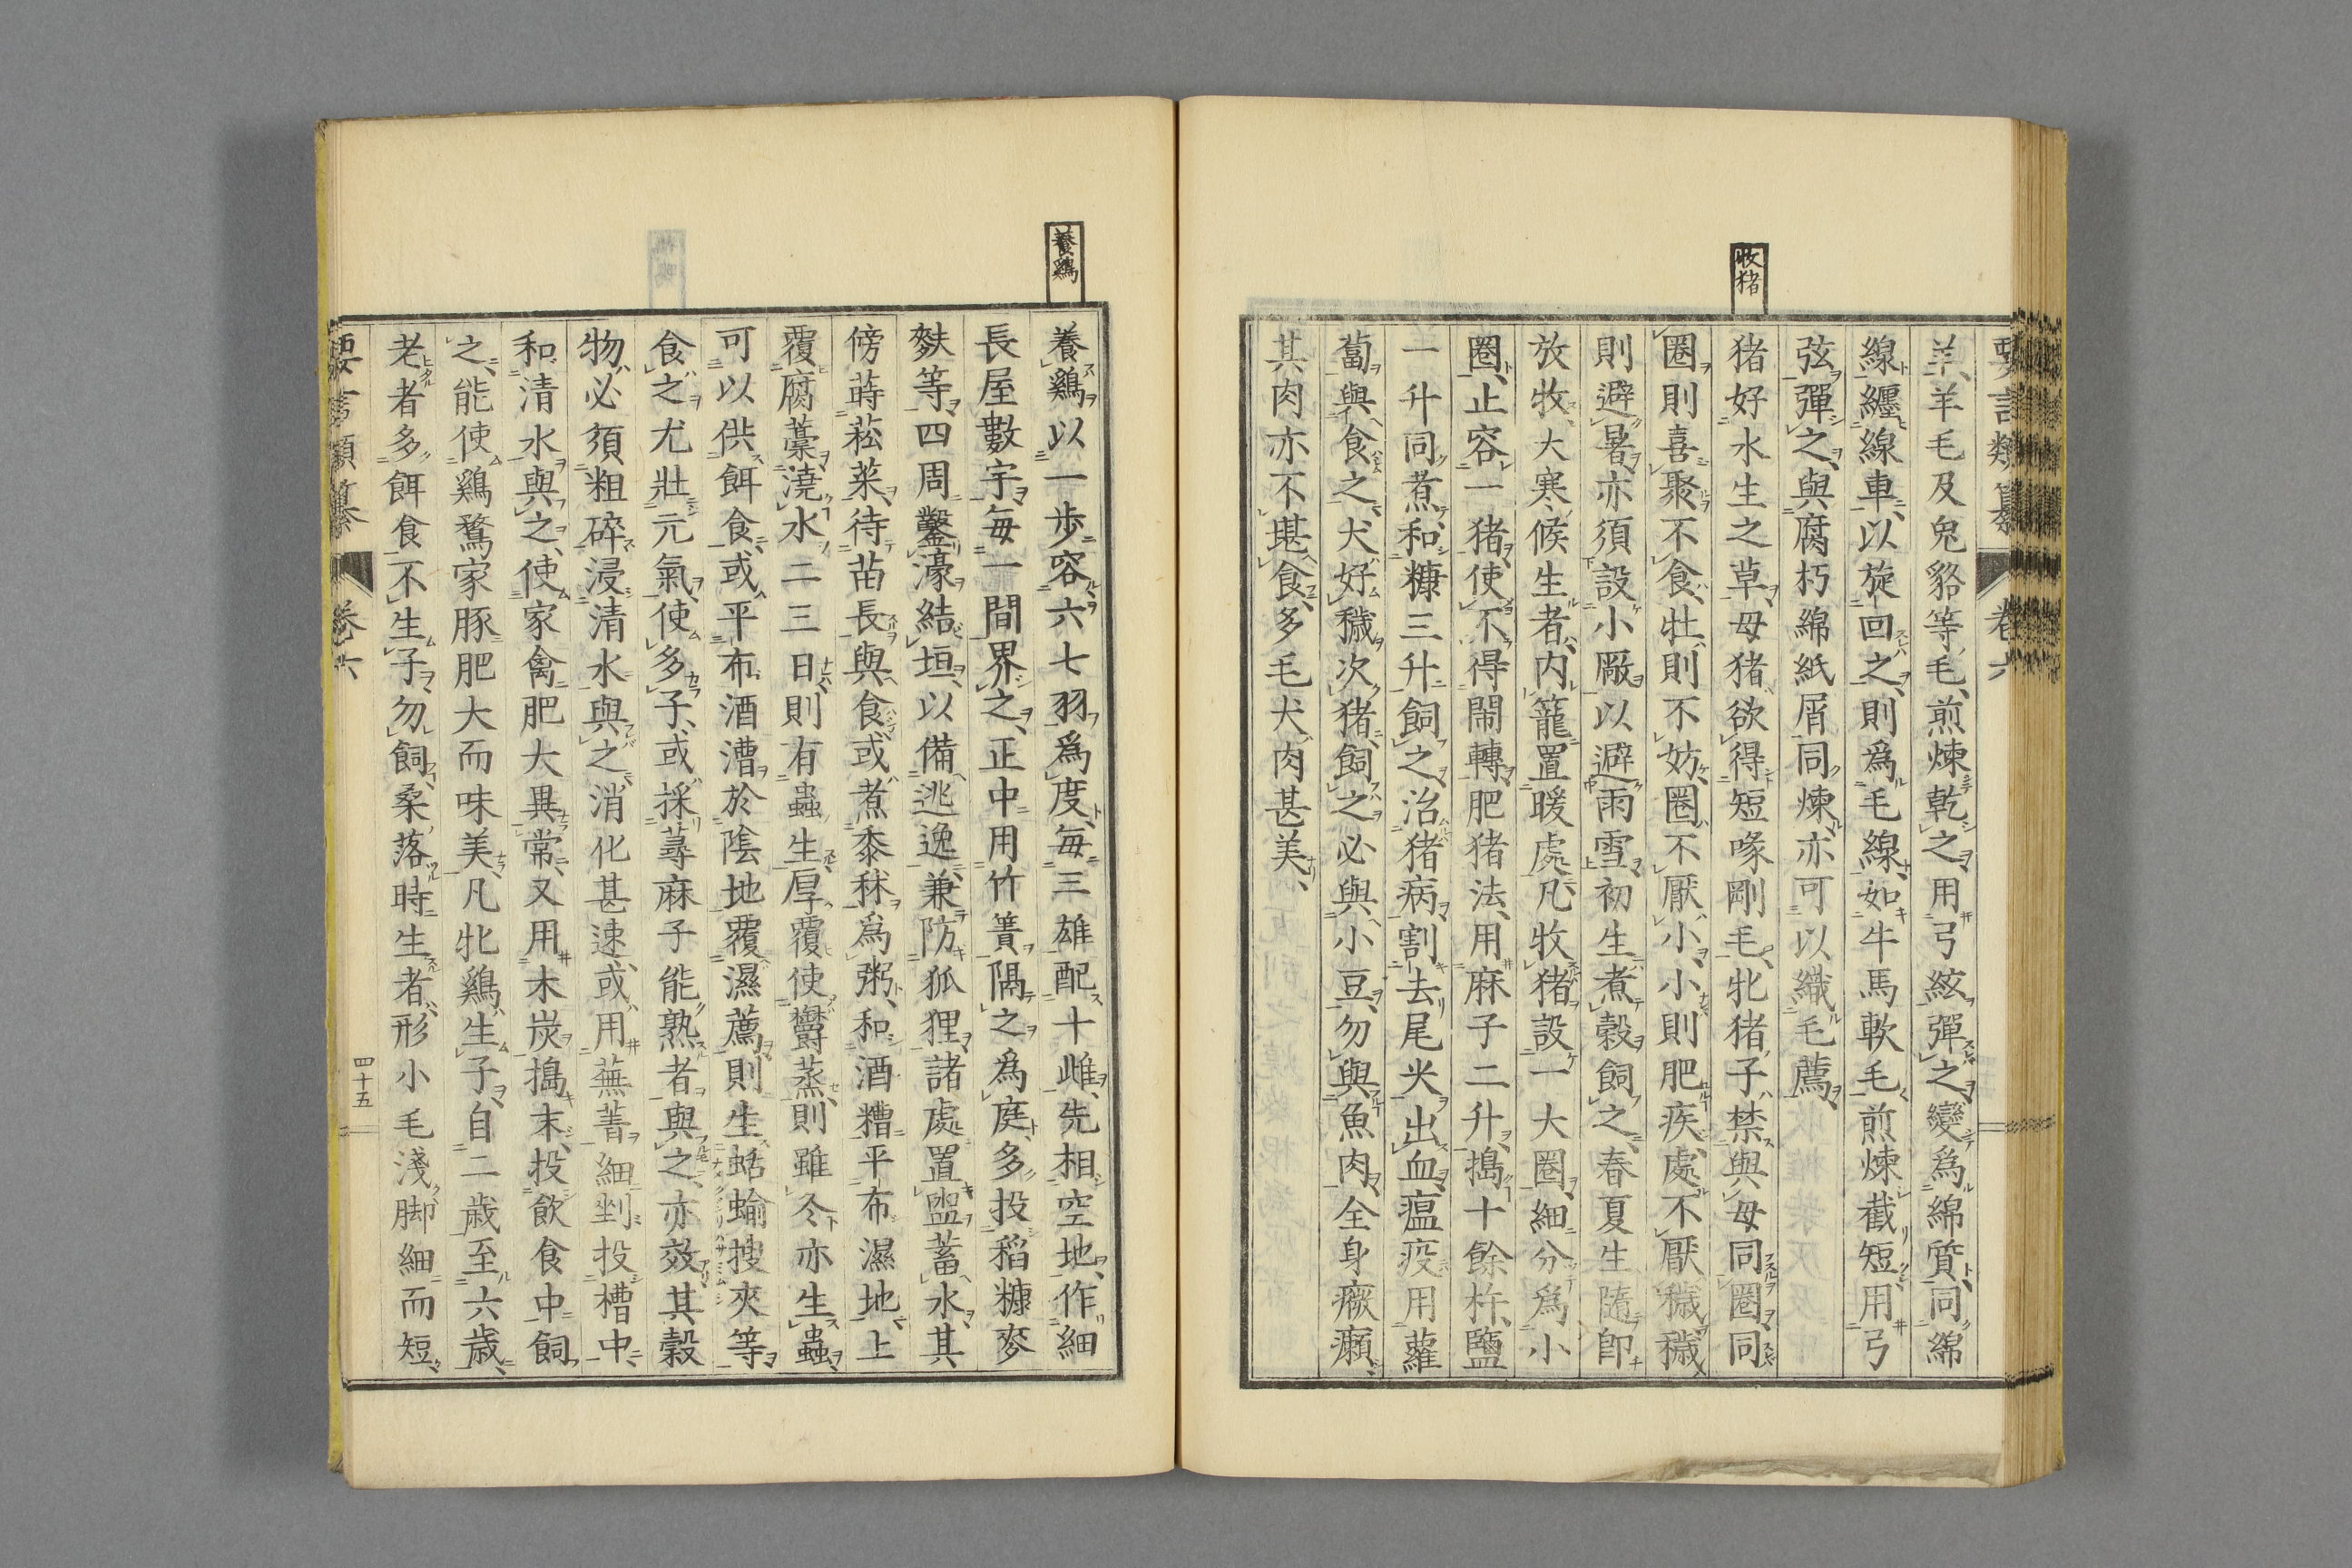 要言類纂 卷六
羊、羊毛及兔貉等毛、煎煉乾之、用弓絃彈之、變爲綿質、同綿
線纒線車、以旋回之、則爲毛線、如牛馬軟毛、煎煉截短、用弓
弦彈之、與腐朽綿紙屑同煉、亦可以織毛薦、
牧猪
猪好水生之草、母猪欲得短喙剛毛、牝猪子禁與母同圈、同
圈則喜聚不食、牡則不妨、圈不厭小、小則肥疾、處不厭穢、穢
則避暑、亦須設小厰以避雨雪、初生煮穀飼之、春夏生隨卽
放牧、大寒候生者、内籠置暖處、凡牧猪設一大圈、細分爲小
圈、止容一猪、使不得鬧轉、肥猪法、用麻子二升、搗十餘杵、鹽
一升同煮、和糠三升飼之、治猪病、割去尾尖出血、瘟疫用蘿
蔔與食之、犬好穢、次猪飼之、必與小豆、勿與魚肉、全身癥癩、
其肉亦不堪食、多毛犬肉甚美、
養鶏
養鶏以一歩容六七羽爲度、毎三雄配十雌、先相空地、作細
長屋數宇、毎一間界之、正中用竹簀隔之爲庭、多投稻糠麥
麩等、四周鑿濠結垣、以備逃逸、兼防狐狸、諸處置盥蓄水、其
傍蒔菘菜、待苗長與食、或煮黍秫爲粥、和酒糟平布濕地、上
覆腐藁澆水二三日、則有蟲生、厚覆使欝蒸、則雖冬亦生蟲、
可以供餌食、或平布酒漕於陰地覆濕薦、則生蛞蝓搜夾等、
食之尤壯元氣、使多子、或採蕁麻子能熟者與之、亦效、其穀
物必須粗碎浸清水與之、消化甚速、或用蕪菁細剉投槽中、
和清水與之、使家禽肥大異常、又用木炭搗末、投飲食中飼
之、能使鶏鶩家豚肥大而味美、凡牝鶏生子、自二歳至六歳、
老者多餌食不生子、勿飼、桑落時生者、形小毛淺、脚細而短、
要言類纂 卷六 四十五